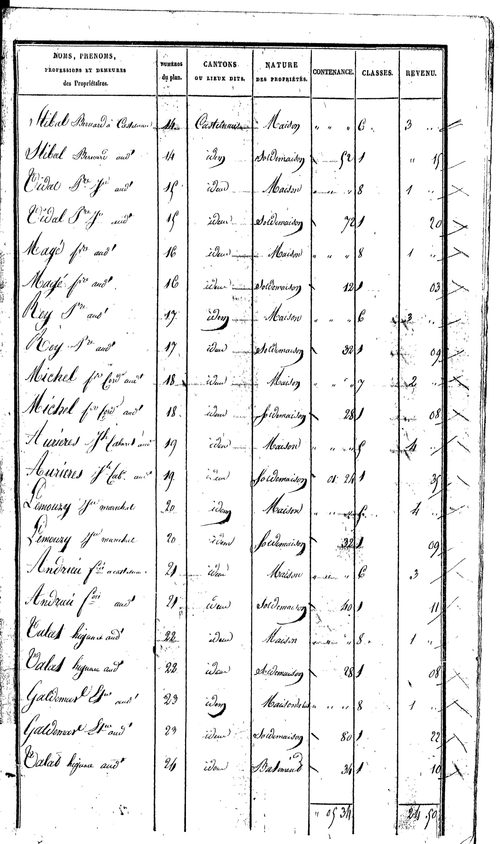 NOMS, PRENOMS, PROFESSIONS ET DEMEURES des Propriétaires. NUMÉROS du plan. CANTONS OU LIEUX DITS. NATURE DES PROPRIÉTÉS. CONTENANCE. CLASSES. REVENU.
Stibal Bernard à 14 Maison " " " 6 3 "
Stibal Bernard audt 14 idem Sol de maison 52 1 " 15
Vidal Pre Jn audt 15 idem Maison " 8 1 "
Vidal Pre Jn audt 15 idem Sol de maison 72 1 20
Magé fre audt 16 idem Maison " " " 8 1 "
Magé fre audt 16 idem Sol de maison 12 1 03
Rey Pre audt 17 idem Maison " " " 6 3 "
Rey Pre audt 17 idem Sol de maison 32 1 09
Michel fre audt 18 idem Maison " " " 7 2 "
Michel fre audt 18 idem Sol de maison 28 1 08
Aurières Jh audt 19 idem Maison " " " 5 4 "
Aurières Jh audt 19 idem Sol de maison 01 24 1 35
Lemouzy Jn marchal 20 idem Maison " " " 5 4 "
Lemouzy Jn marchal 20 idem Sol de maison 32 1 09
Andrieu fois 21 idem Maison " " 6 3 "
Andrieu fois audt 21 idem Sol de maison 40 1 11
Calat audt 22 idem Maison " 8 1 "
Valat audt 22 idem Sol de maison 28 1 08
Galdemar audt 23 idem Maison " " " 8 1 "
Galdemar audt 23 idem Sol de maison 80 1 22
audt 24 idem Batiment 34 1 10
" 05 34 24 50